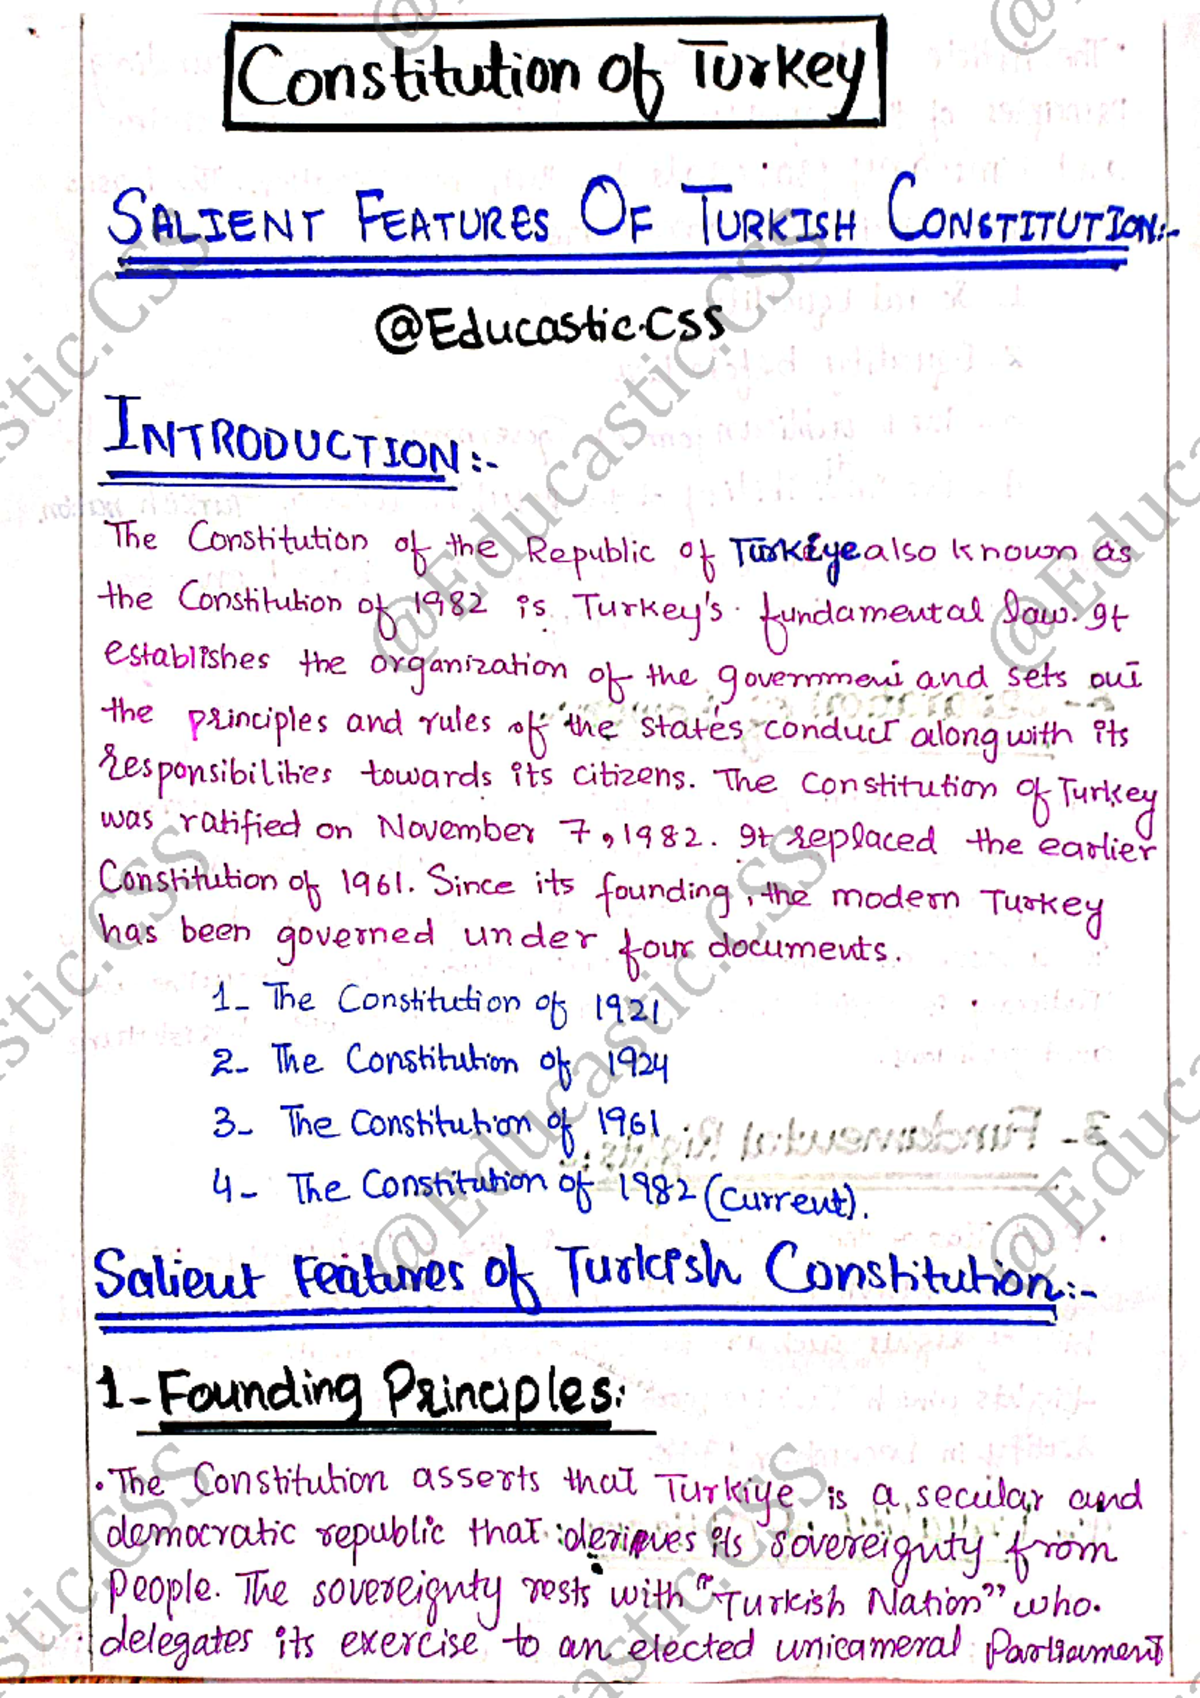 Constitution of Turkey
SALIENT FEATURES OF TURKISH CONSTITUTION:-
@Educastic.CSS
INTRODUCTION:-
The Constitution of the Republic of Türkiye also known as
the Constitution of 1982 is Turkey's fundamental law. It
establishes the organization of the government and sets out
the principles and rules of the state's conduct along with its
responsibilities towards its citizens. The Constitution of Turkey
was ratified on November 7, 1982. It replaced the earlier
Constitution of 1961. Since its founding, the modern Turkey
has been governed under four documents.
1- The Constitution of 1921
2- The Constitution of 1924
3- The Constitution of 1961
4- The Constitution of 1982 (current).
Salient Features of Turkish Constitution:-
1- Founding Principles:
• The Constitution asserts that Turkiye is a secular and
democratic republic that derives its sovereignty from
people. The sovereignty rests with "Turkish Nation" who
delegates its exercise to an elected unicameral Parliament
@Educastic.CSS